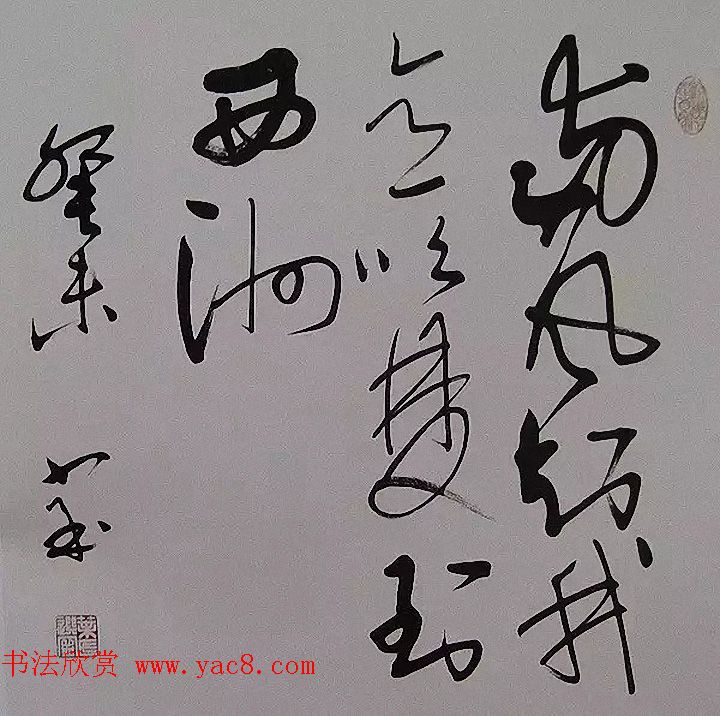 南风知我
意吹梦到
西洲
癸未
书法欣赏 www.yac8.com